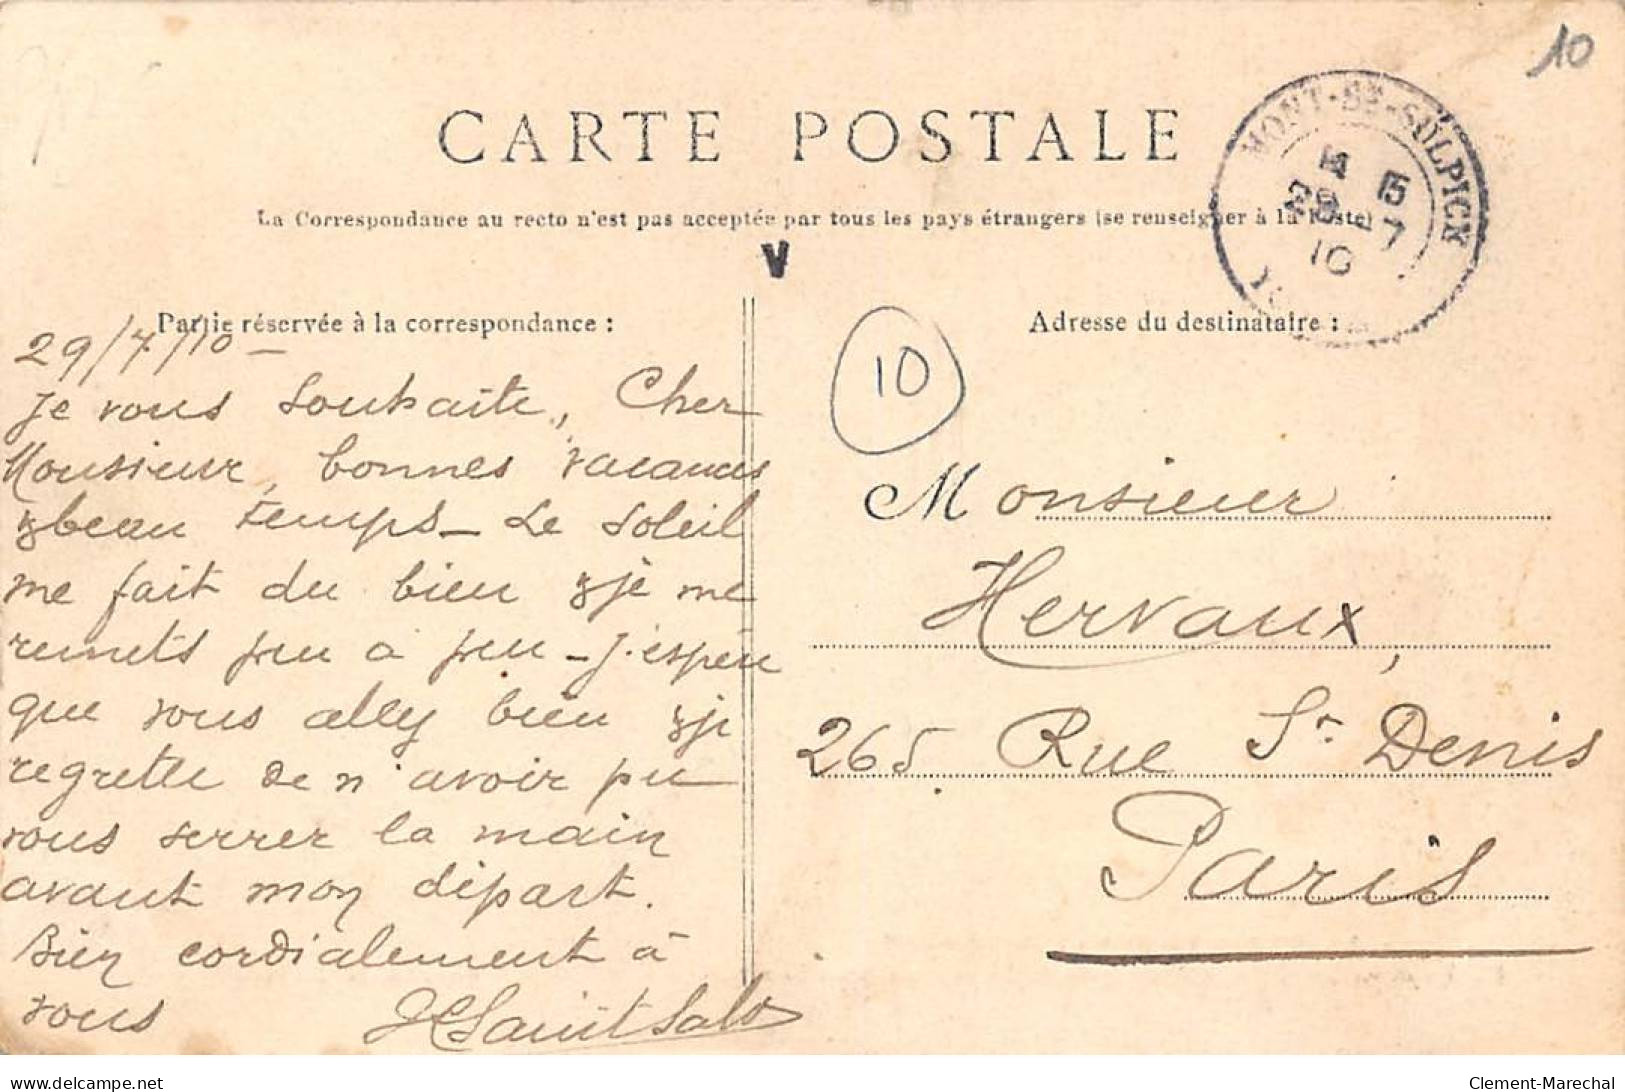 10
CARTE POSTALE
La Correspondance au recto n'est pas acceptée par tous les pays étrangers (se renseigner à la Poste)
MONT-St-SULPICE
10
V
Partie réservée à la correspondance :
29/7/10 -
Je vous souhaite, Cher
Monsieur, bonnes vacances
& beau temps - Le soleil
me fait du bien & je me
remets peu à peu - J'espère
que vous allez bien & je
regrette de n'avoir pu
vous serrer la main
avant mon départ.
Bien cordialement à
vous
Adresse du destinataire :
10
Monsieur
Hervaux,
265 Rue St Denis
Paris
www.delcampe.net
Clement-Marechal